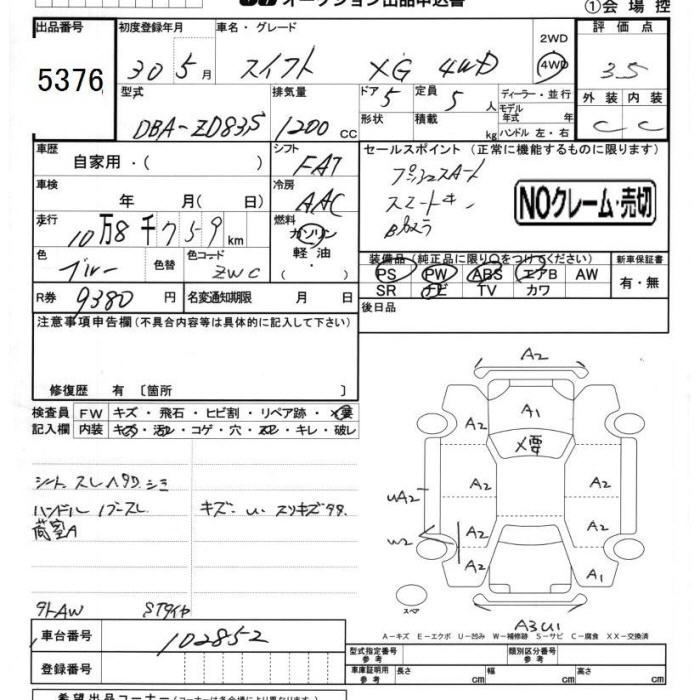 オークション出品申込書
①会場控
出品番号 初度登録年月 車名・グレード 評価点
5376 30 5月 スイフト XG 4WD 2WD 4WD 3.5
型式 排気量 ドア 5 定員 5人 ディーラー・並行 外装 内装
DBA-ZD83S 1200cc 形状 積載 kg モデル年式 年式 ハンドル 左・右 C C
車歴 自家用・( ) シフト FAT セールスポイント (正常に機能するものに限ります)
プッシュスタート
スマートキー
Bカメラ
NOクレーム・売切
車検 年 月( 日) 冷房 AAC
走行 10万8千759km 燃料 ガソリン・軽油・( )
色 ブルー 色替 色コード ZWC
装備品(純正品に限り○をつけてください) 新車保証書
PS PW ABS エアB AW 有・無
SR ナビ TV カワ
R券 9380円 名変通知期限 月 日
後日品
注意事項申告欄(不具合内容等は具体的に記入して下さい)
修復歴 有 〔箇所 〕
検査員 FW キズ・飛石・ヒビ割・リペア跡・X要
記入欄 内装 キズ・汚レ・コゲ・穴・ヌレ・キレ・破レ
シート スレ ヘタリ シミ
ハンドル ノブスレ キズ・U・スリキズ
荷室A
タトAW STタイヤ
A2
A1
X要
A2 A2
A2 A2
UA2
W2 A2
A2 A1
スペア
A3U1
A-キズ E-エクボ U-凹み W-補修跡 S-サビ C-腐食 XX-交換済
車台番号 102852
登録番号
型式指定番号 参考 類別区分番号 参考
車庫証明用 参考 長さ cm 幅 cm 高さ cm
希望出品コーナー